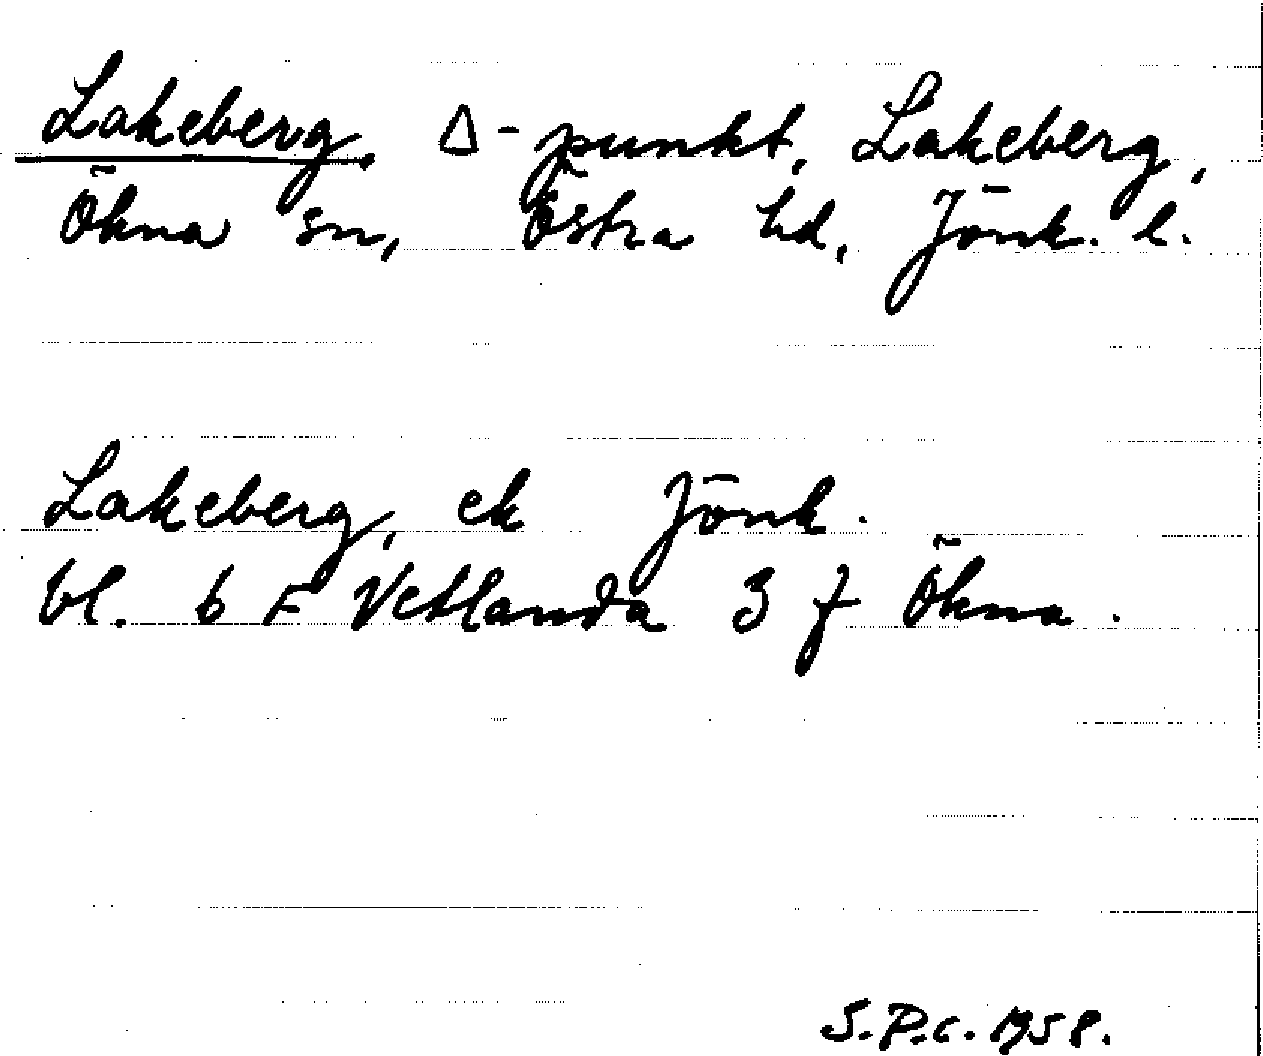 Lakeberg, Δ-punkt, Lakeberg,
Ökna sn, Östra hd, Jönk. l.
Lakeberg, ek Jönk.
bl. 6 F Vetlanda 3 f Ökna.
S.P.C. 1958.